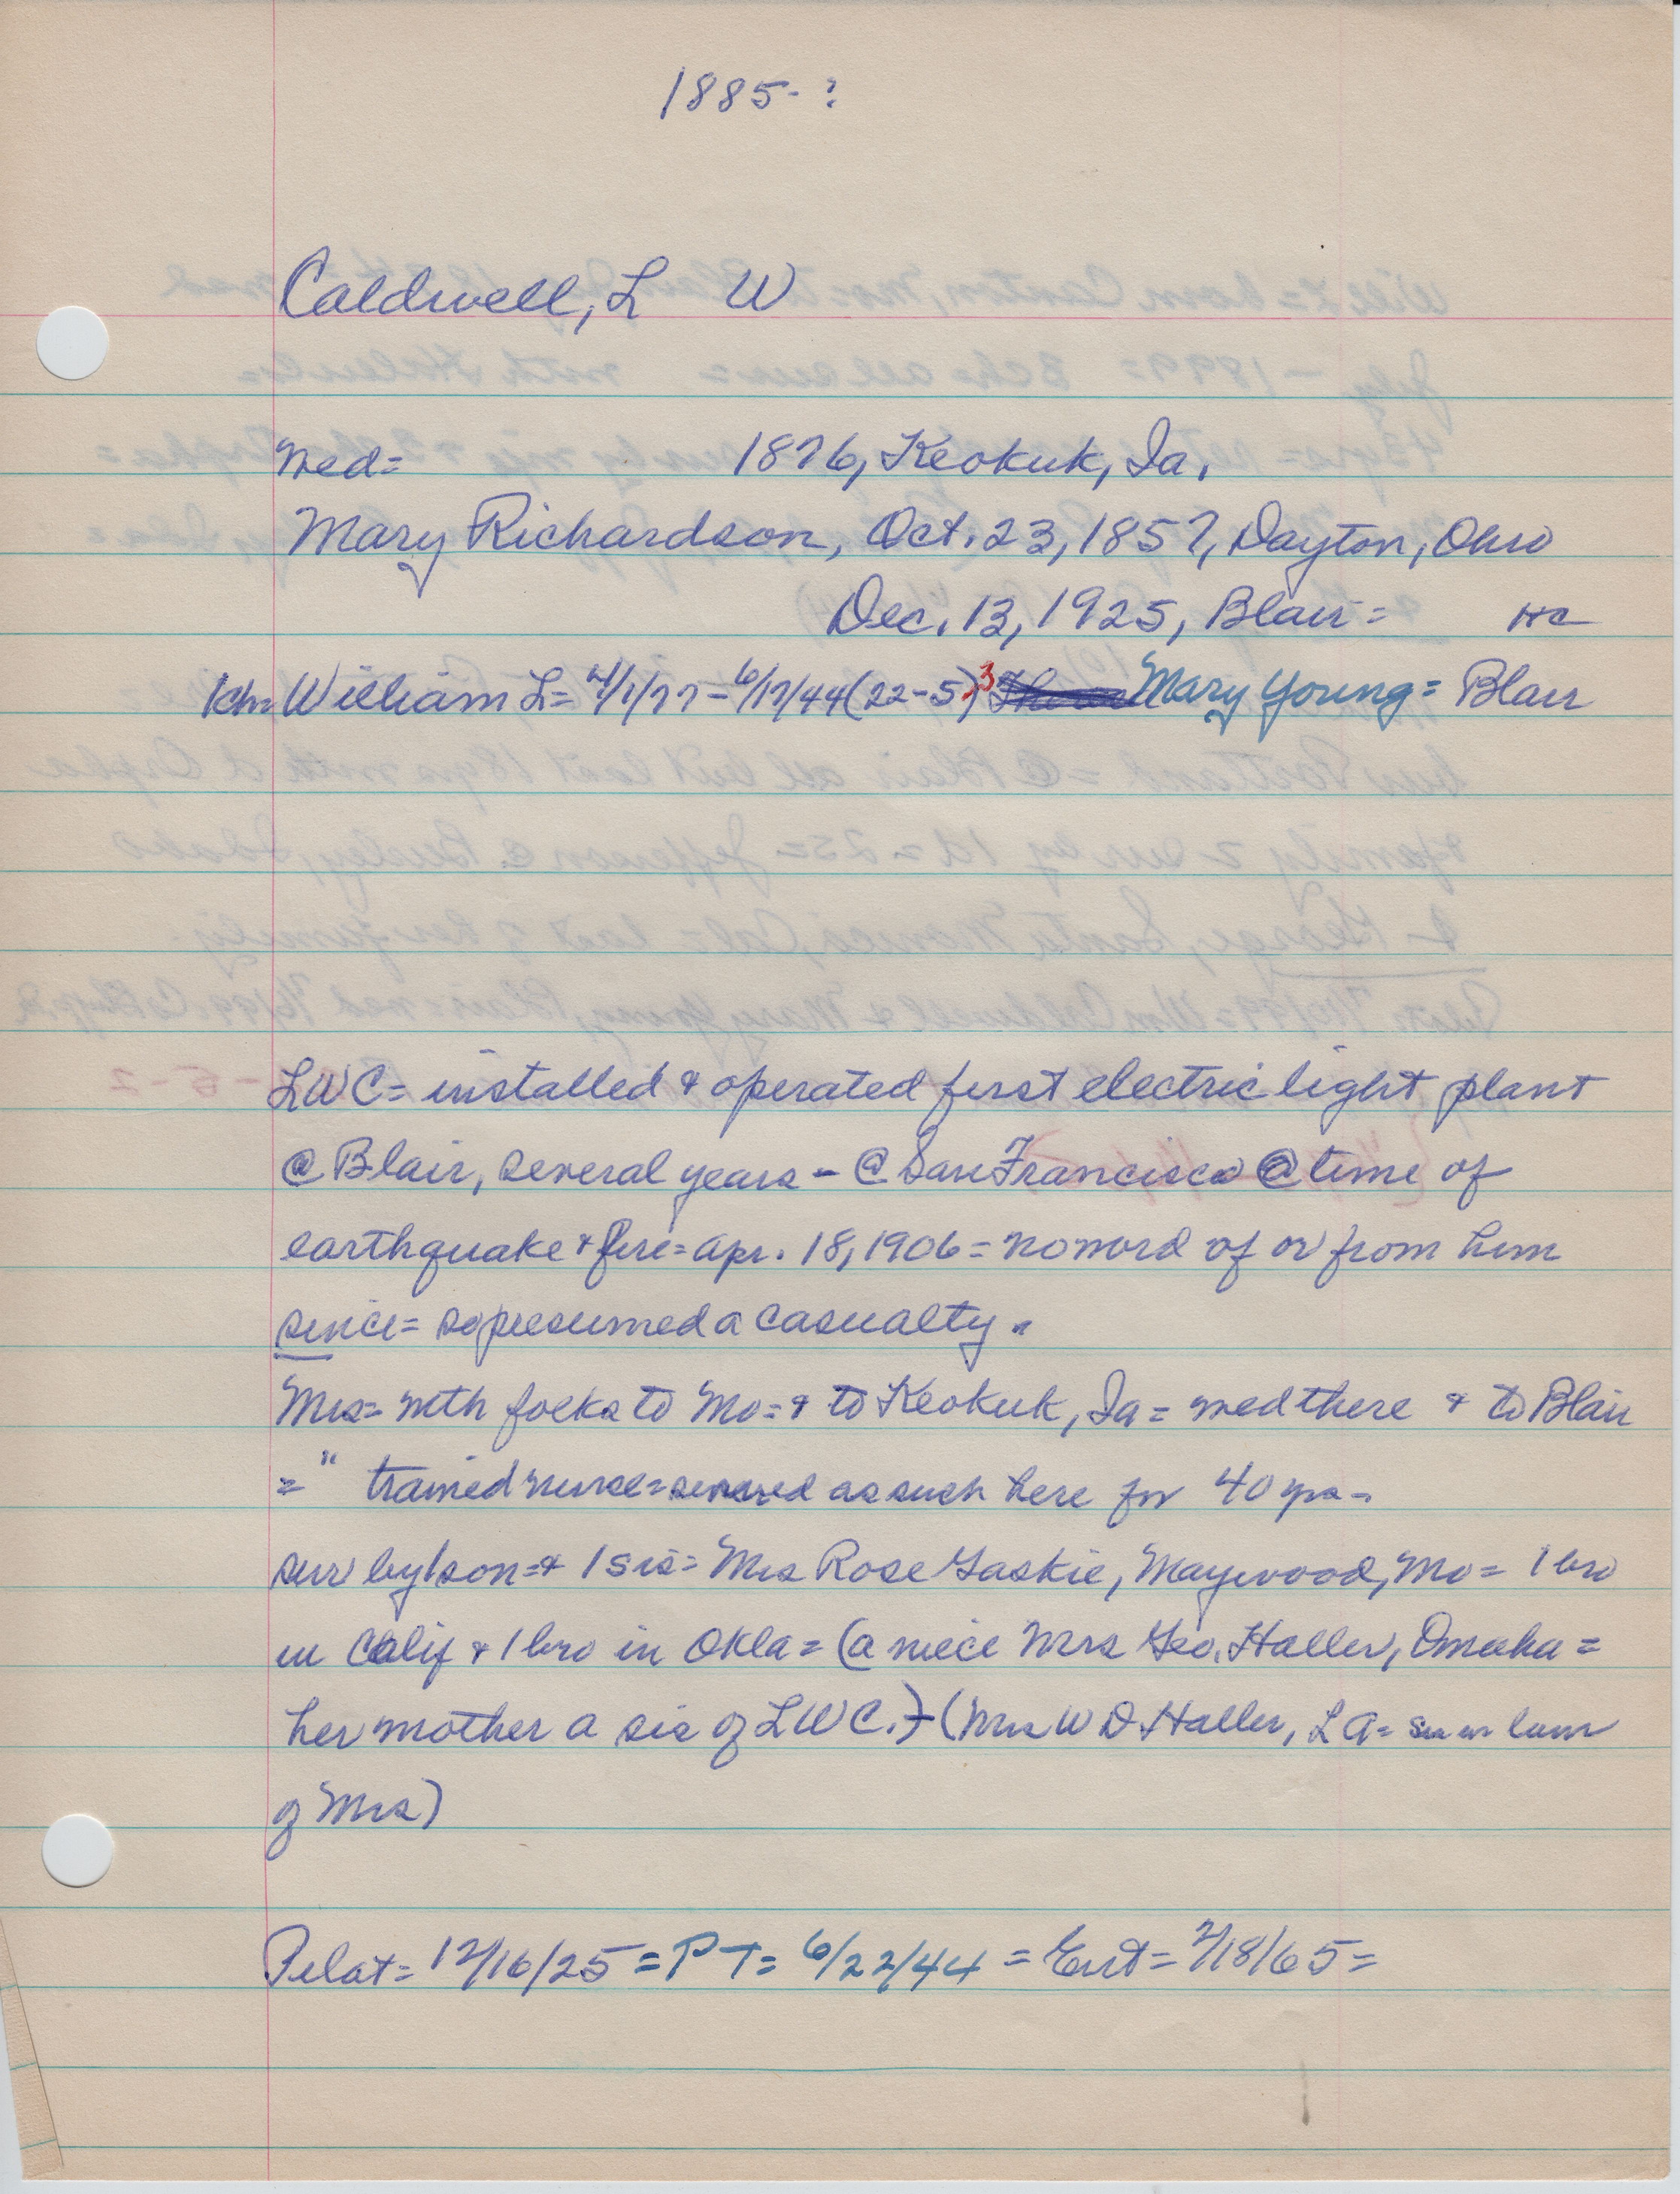 1885-?
Caldwell, L W
Med= 1876, Keokuk, Ia.
Mary Richardson, Oct. 23, 1857, Dayton, Ohio
Dec. 13, 1925, Blair=
1ch= William L= 4/1/77-6/17/44 (22-5) 3 Mary Young= Blair
LWC= installed & operated first electric light plant
@ Blair, several years - @ San Francisco @ time of
earthquake & fire= Apr. 18, 1906= no word of or from him
since= so presumed a casualty.
Mrs= with folks to Mo= & to Keokuk, Ia= med there & to Blair
= " trained nurse= served as such here for 40 yrs=
sur by 1 son= & 1 sis= Mrs Rose Maywood, Mo= 1 bro
in Calif & 1 bro in Okla= (a niece Mrs Geo. Haller, Omaha=
her mother a sis of LWC.) (Mrs W D Haller, LA=
of Mrs)
Pilot= 12/16/25= PT= 6/22/44= Ent= 2/18/65=